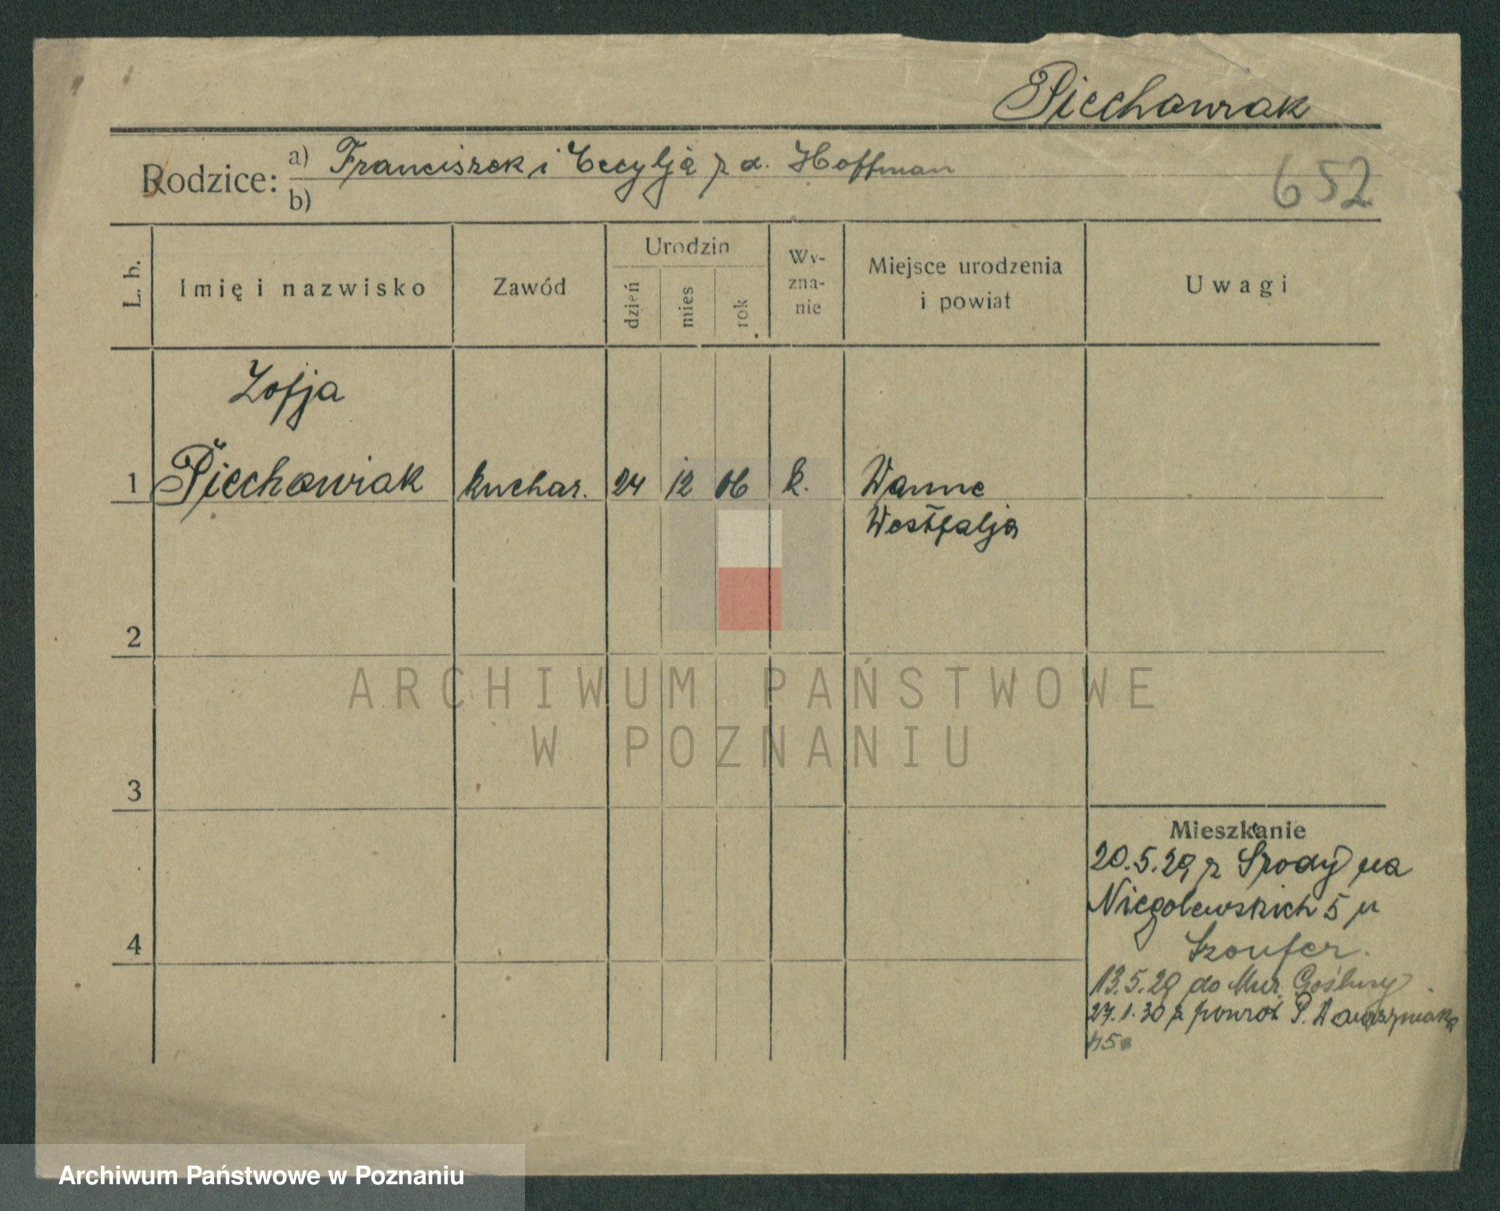 Piechowiak
Rodzice: a) Franciszek i Cecylja z d. Hoffman
b)
652
L. b.
Imię i nazwisko
Zawód
Urodzin
dzień
mies
rok
Wy-
zna-
nie
Miejsce urodzenia
i powiat
Uwagi
Zofja
1 Piechowiak kuchar. 24 12 06 k. Wanne
Westfalja
2
3
4
ARCHIWUM PAŃSTWOWE
W POZNANIU
Mieszkanie
20.5.29 z Środy na
Niegolewskich 5 u
Szoufer.
13.5.29 do Mur. Gośliny
27.1.30 z powrot P.
Archiwum Państwowe w Poznaniu